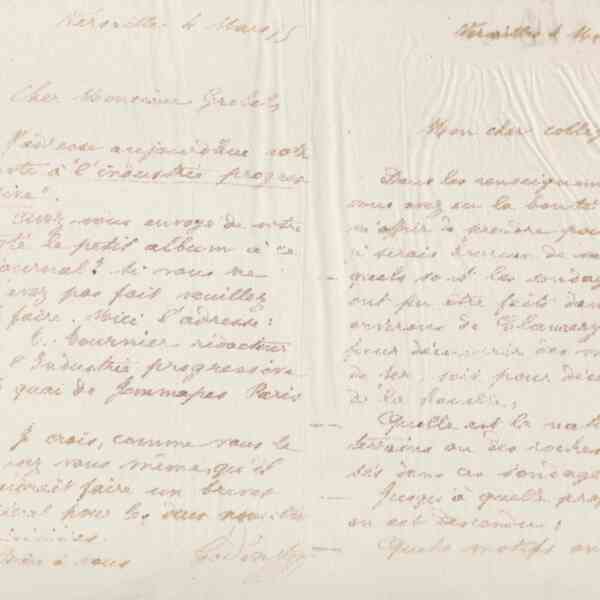 Versailles 4 Mars
Cher Monsieur
J'adresse aujourd'hui votre
note à l'industrie progres
sive.
Avez vous envoyé de votre
côté le petit album à ce
journal? Si vous ne
l'avez pas fait veuillez
faire. Voici l'adresse:
E. Tournier rédacteur
l'Industrie progressive
quai de Jemmapes Paris
Je crois, comme vous le
vous même, qu'il
faire un brevet
pour les deux
à vous
Godin
Versailles 4 Ma
Mon cher collèg
Dans les renseignem
vous avez eu la bonté
m'offrir de prendre pou
je serais heureux de
quels sont les sondag
ont pu être faits dan
environs de Clamecy
pour découvrir des m
de fer, soit pour déco
de la houille,
Quelle est la nat
terrains ou des roches
sés dans ces sondage
Jusqu'à quelle pro
on est descendu;
Quels motifs on